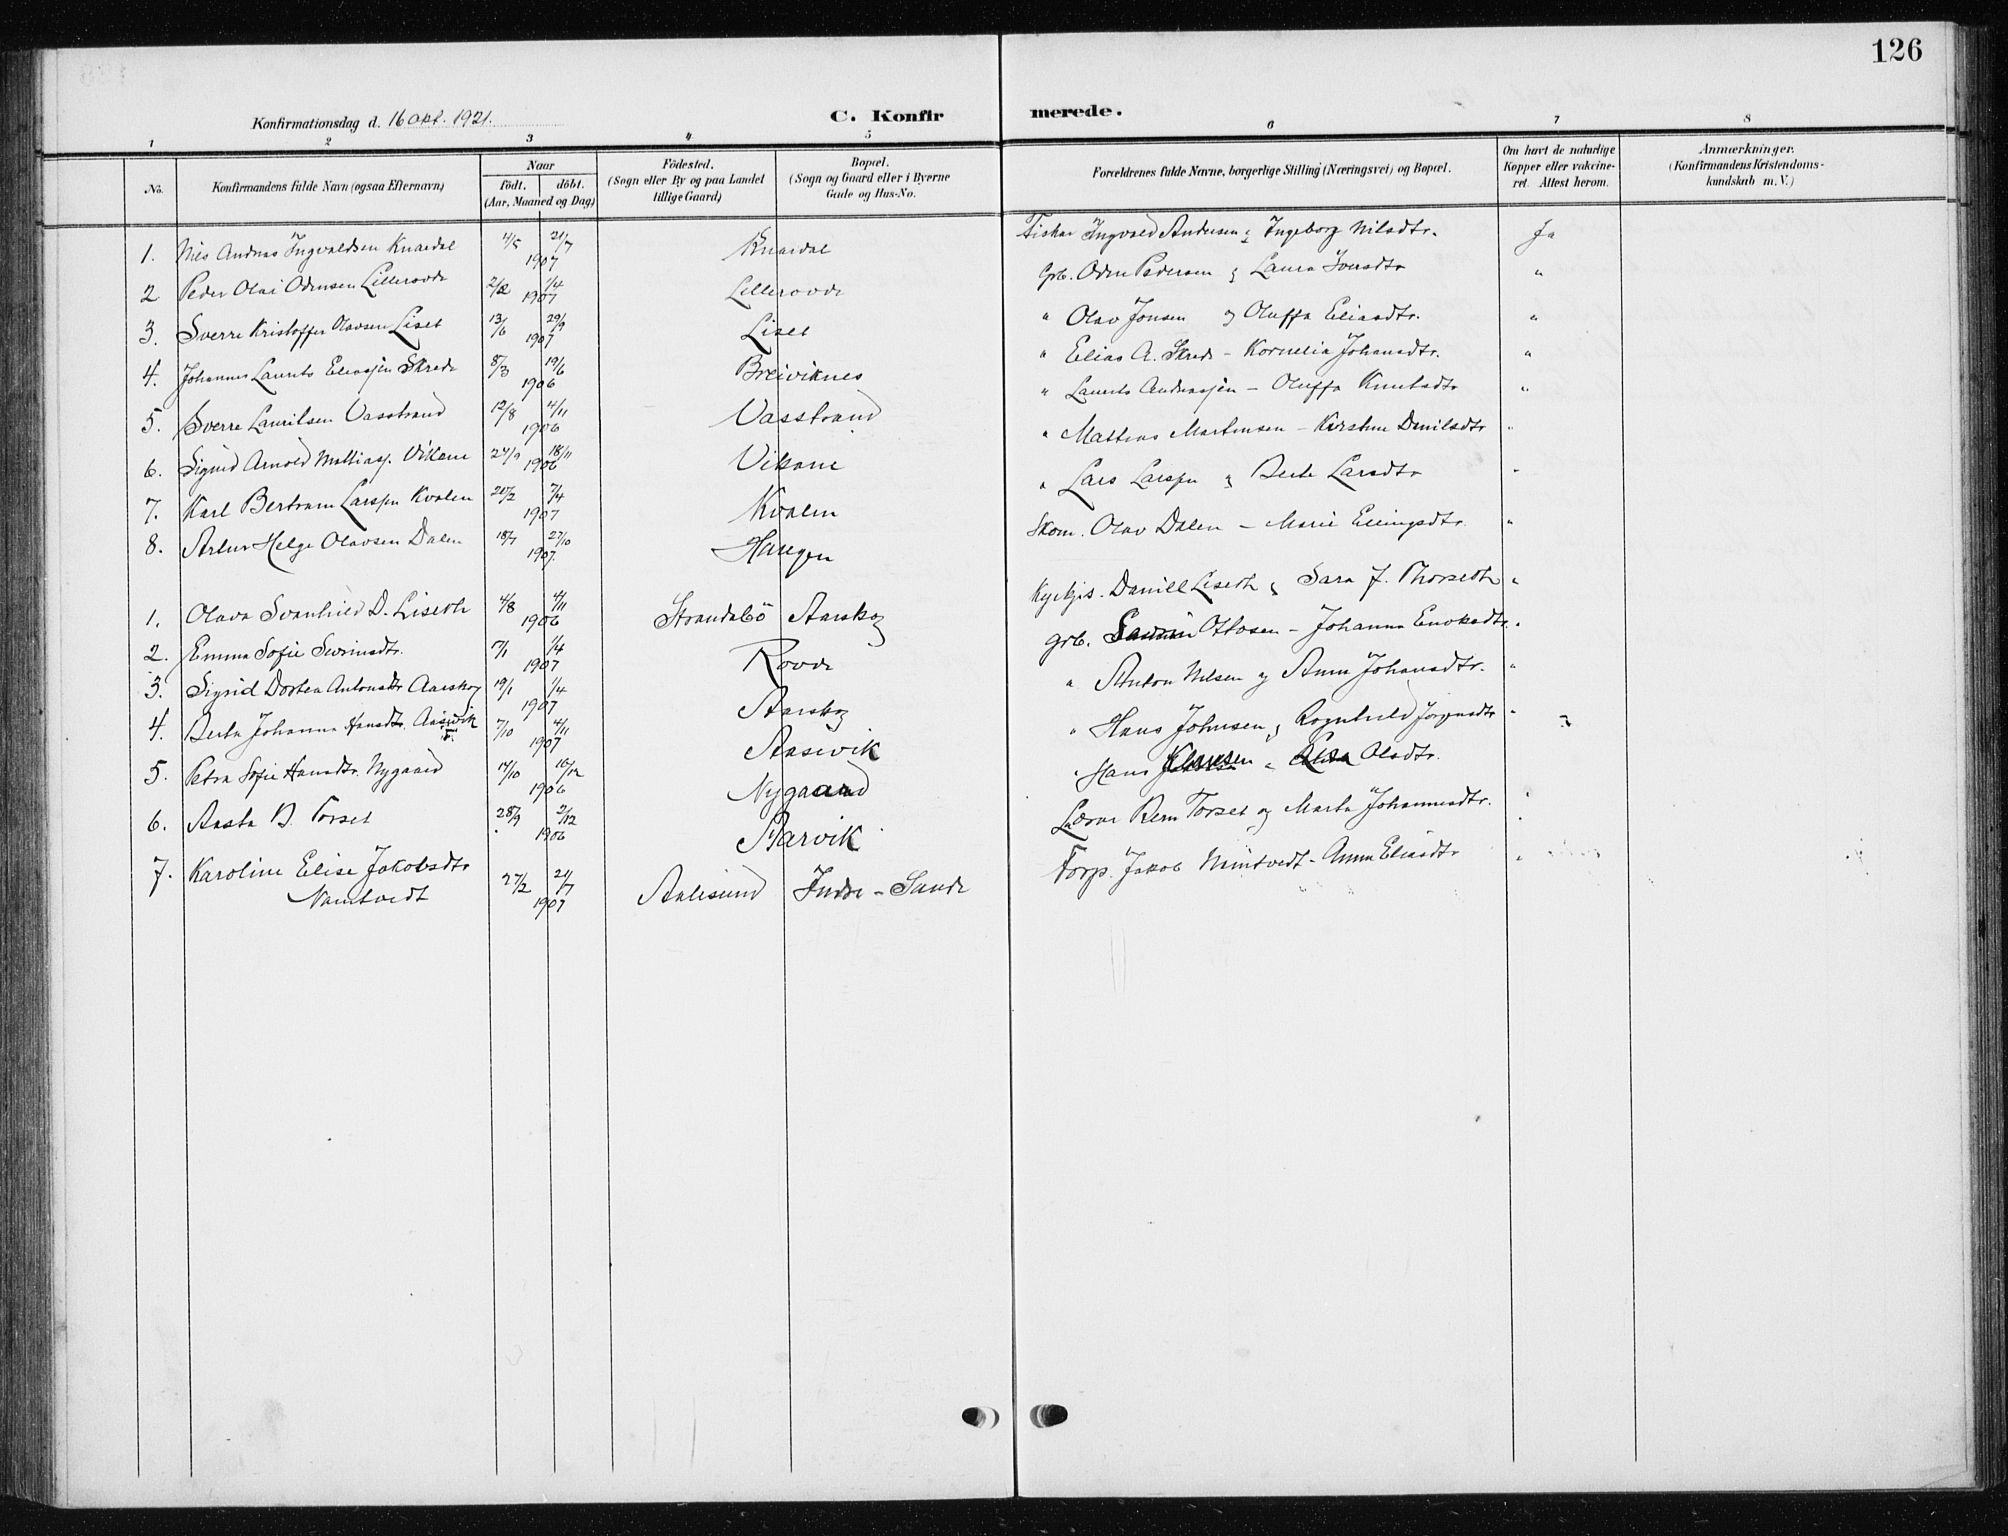 126
Konfirmationsdag d. 16 Okt. 1921.
C. Konfirmerede.
1 2 3 4 5 6 7 8
No.
Konfirmandens fulde Navn (ogsaa Efternavn)
Naar
födt. döbt.
(Aar, Maaned og Dag)
Födested.
(Sogn eller By og paa Landet
tillige Gaard)
Bopæl.
(Sogn og Gaard eller i Byerne
Gade og Hus-No.
Forældrenes fulde Navne, borgerlige Stilling (Næringsvei) og Bopæl.
Om havt de naturlige
Kopper eller vakcine-
ret. Attest herom.
Anmærkninger.
(Konfirmandens Kristendoms-
kundskab m. V.)
1. Nils Andreas Ingvaldsen Knardal 4/5 21/7 1907 Knardal Fisker Ingvald Andersen Ingeborg Nilsdtr. Ja
2 Peder Olai Odensen Lillerovde 2/2 1/4 1907 Lillerovde Grb. Oden Pedersen og Laura "
3. Sverre Kristoffer Olavsen Liset 13/6 29/9 1907 Liset " Olav Jonsen og Oluffa Eliasdtr. "
4. Johannes Laurits Eliassen Skrede 8/3 19/6 1906 Breiviknes " Elias A. Skrede - Kornelia Johansdtr. "
5. Sverre Lauritsen Vasstrand 12/8 4/11 1906 Vasstrand " Laurits Andreassen - Oluffa Knutsdtr "
6. Sigurd Arnold Mattiass. Vikane 24/9 18/11 1906 Vikane " Mattias Martinsen - Kirstine Danilsdtr "
7. Karl Bertram Larssen Kvalen 20/2 7/4 1907 Kvalen " Lars Larssen og Berte Larsdtr "
8. Artur Helge Olavsen Dalen 18/7 27/10 1907. Haugen Skom. Olav Dalen - Marie Ellingsdtr. "
1. Olava Svanhild D. Liseth 4/8 4/11 1906 Strandabö Aarskog Daniel Liseth og Sara J. Thorseth "
2. Emma Sofie Sevrinsdtr. 7/1 1/4 1907 Rovde grb. Ottosen - Johanna Enoksdtr. "
3. Sigrid Dortea Antonsdtr Aarskog 19/1 1/4 1907 Aarskog " Anton Nilsen og Anna Johansdtr. "
4. Berta Johanna Hansdtr. Aasevik 7/10 4/11 1907 Aasevik " Hans Johnsen og Ragnhild Jörgensdtr "
5. Petra Sofie Hansdtr. Nygaard 14/10 16/12 1906 Nygaard " Hans Klausen " Olsdtr.
6. Aasta B. Torset 28/9 2/12 1906 Aarvik Lærer Bern Torset og Marta Johannesdtr. "
7. Karoline Elise Jakobsdtr 27/2 21/7 1907 Aalesund Indre - Sande Forp. Jakob - Anna Eliasdtr "
Namtvedt